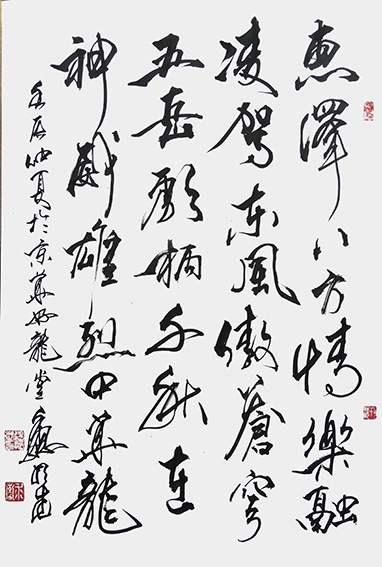 惠澤八方情樂融
凌駕東風傲蒼穹
五岳彪炳千秋在
神威雄烈中華龍
壬辰仲夏於京華好龍堂